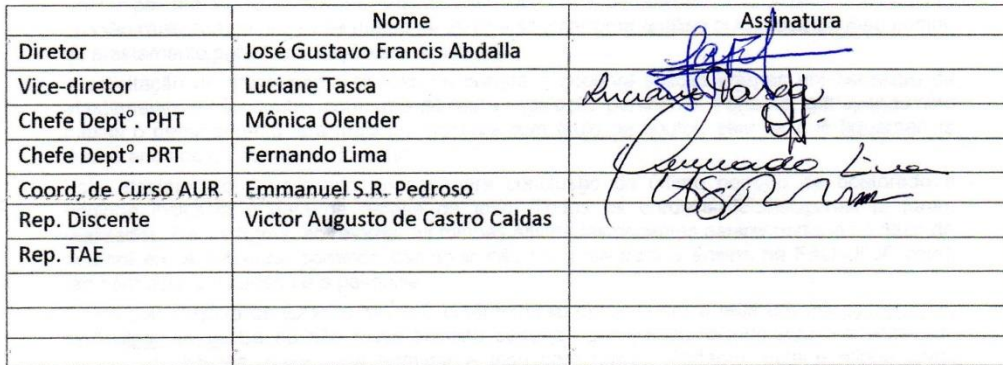 Nome Assinatura
Diretor José Gustavo Francis Abdalla
Vice-diretor Luciane Tasca Luciane Tasca
Chefe Deptº. PHT Mônica Olender
Chefe Deptº. PRT Fernando Lima Fernando Lima
Coord. de Curso AUR Emmanuel S.R. Pedroso
Rep. Discente Victor Augusto de Castro Caldas
Rep. TAE